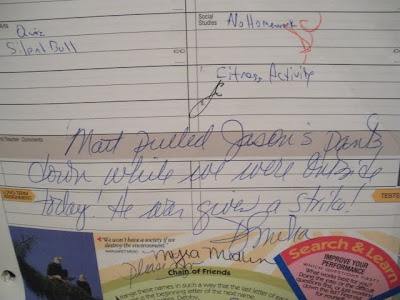 Arts
Social
Studies
No Homework
Quiz
Silent Ball
Fitness Activity
Teacher Comments
Matt pulled Jason's pants
down while we were outside
today! He was given a strike!
LONG-TERM
ASSIGNMENT
TESTS
"We won't have a society if we
destroy the environment."
MARGARET MEAD
please
Chain of Friends
these names in such a way that the last letter of
is the beginning letter of the next name.
Search & Learn
IMPROVE YOUR
PERFORMANCE